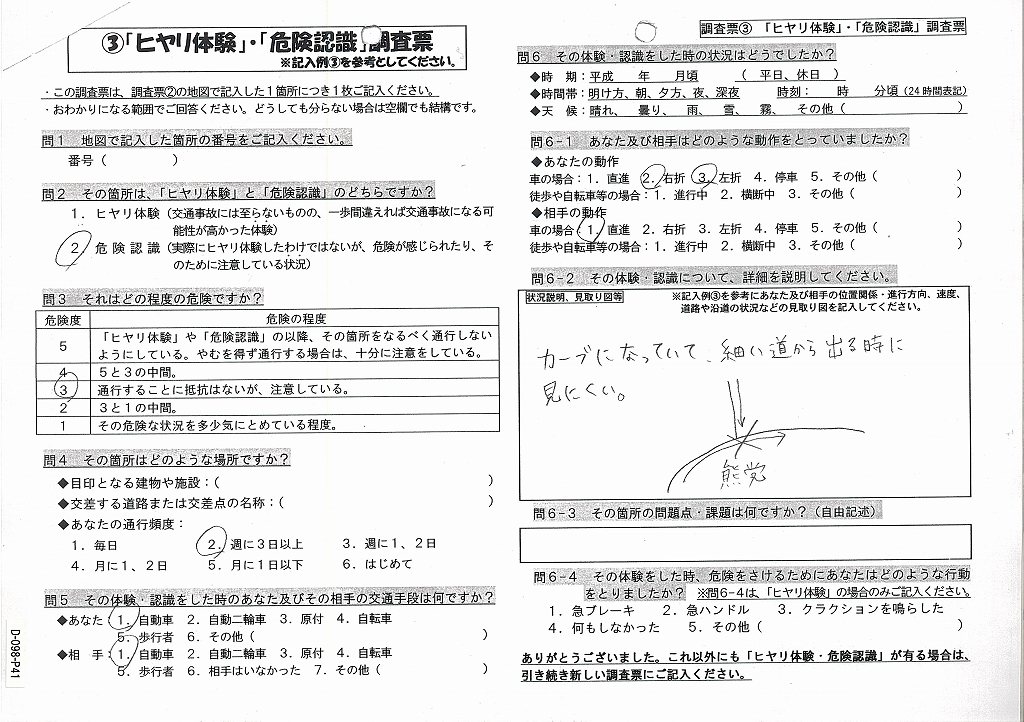 ③「ヒヤリ体験」・「危険認識」調査票
※記入例③を参考としてください。
・この調査票は、調査票②の地図で記入した１箇所につき１枚ご記入ください。
・おわかりになる範囲でご回答ください。どうしても分らない場合は空欄でも結構です。
問１　地図で記入した箇所の番号をご記入ください。
番号（　　　　　）
問２　その箇所は、「ヒヤリ体験」と「危険認識」のどちらですか？
１．ヒヤリ体験（交通事故には至らないものの、一歩間違えれば交通事故になる可
能性が高かった体験）
２　危険認識（実際にヒヤリ体験したわけではないが、危険が感じられたり、そ
のために注意している状況）
問３　それはどの程度の危険ですか？
危険度　危険の程度
５　「ヒヤリ体験」や「危険認識」の以降、その箇所をなるべく通行しない
ようにしている。やむを得ず通行する場合は、十分に注意をしている。
４　５と３の中間。
３　通行することに抵抗はないが、注意している。
２　３と１の中間。
１　その危険な状況を多少気にとめている程度。
問４　その箇所はどのような場所ですか？
◆目印となる建物や施設：（　　　　　）
◆交差する道路または交差点の名称：（　　　　　）
◆あなたの通行頻度：
１．毎日　２．週に３日以上　３．週に１、２日
４．月に１、２日　５．月に１日以下　６．はじめて
問５　その体験・認識をした時のあなた及びその相手の交通手段は何ですか？
◆あなた：１．自動車　２．自動二輪車　３．原付　４．自転車
５．歩行者　６．その他（　　　　　）
◆相　手：１．自動車　２．自動二輪車　３．原付　４．自転車
５．歩行者　６．相手はいなかった　７．その他（　　　　　）
D-098-P41
調査票③　「ヒヤリ体験」・「危険認識」調査票
問６　その体験・認識をした時の状況はどうでしたか？
◆時　期：平成　　年　　月頃　　（　平日、休日　）
◆時間帯：明け方、朝、夕方、夜、深夜　　時刻：　　時　　分頃（24時間表記）
◆天　候：晴れ、　曇り、　雨、　雪、　霧、　その他（　　　　　）
問６-１　あなた及び相手はどのような動作をとっていましたか？
◆あなたの動作
車の場合：１．直進　２．右折　３．左折　４．停車　５．その他（　　　　　）
徒歩や自転車等の場合：１．進行中　２．横断中　３．その他（　　　　　）
◆相手の動作
車の場合：１．直進　２．右折　３．左折　４．停車　５．その他（　　　　　）
徒歩や自転車等の場合：１．進行中　２．横断中　３．その他（　　　　　）
問６-２　その体験・認識について、詳細を説明してください。
状況説明、見取り図等　※記入例③を参考にあなた及び相手の位置関係・進行方向、速度、
道路や沿道の状況などの見取り図を記入してください。
カーブになっていて、細い道から出る時に
見にくい。
問６-３　その箇所の問題点・課題は何ですか？（自由記述）
問６-４　その体験をした時、危険をさけるためにあなたはどのような行動
をとりましたか？　※問６-４は、「ヒヤリ体験」の場合のみご記入ください。
１．急ブレーキ　２．急ハンドル　３．クラクションを鳴らした
４．何もしなかった　５．その他（　　　　　）
ありがとうございました。これ以外にも「ヒヤリ体験・危険認識」が有る場合は、
引き続き新しい調査票にご記入ください。